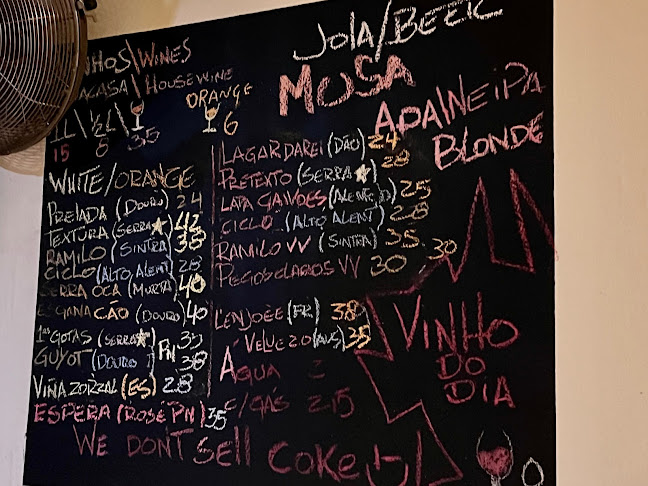 JOLA/BEER
NHOS\WINES
ACASA\HOUSEWINE
MUSA
1L\½L\
ORANGE
15 8 35
6
APA/NEIPA
BLONDE
WHITE/ORANGE
PRELADA (DOURO) 24
TEXTURA (SERRA★) 42
RAMILO (SINTRA) 38
CICLO (ALTO ALENT) 28
SERRA OCA (MURTA) 40
ESGANA CÃO (DOURO) 40
1as GOTAS (SERRA★) 35
GUYOT (DOURO) PN 38
VIÑA ZORZAL (ES) 28
ESPERA (ROSÉ PN) 35
LAGAR DAREI (DÃO) 24
PRETEXTO (SERRA★) 28
LAPA GAIVOES (ALENTJ) 25
CICLO (ALTO ALENT) 28
RAMILO VV (SINTRA) 35
30
VV 30
L'ENJOEE (FR) 38
VELUEZO (AUS) 35
ÁGUA 2
C/GÁS 2.15
VINHO
DO
DIA
WE DONT SELL COKE